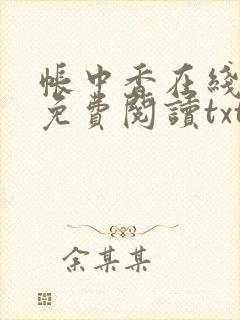 帳中香在綫
免費閱讀txt
余某某